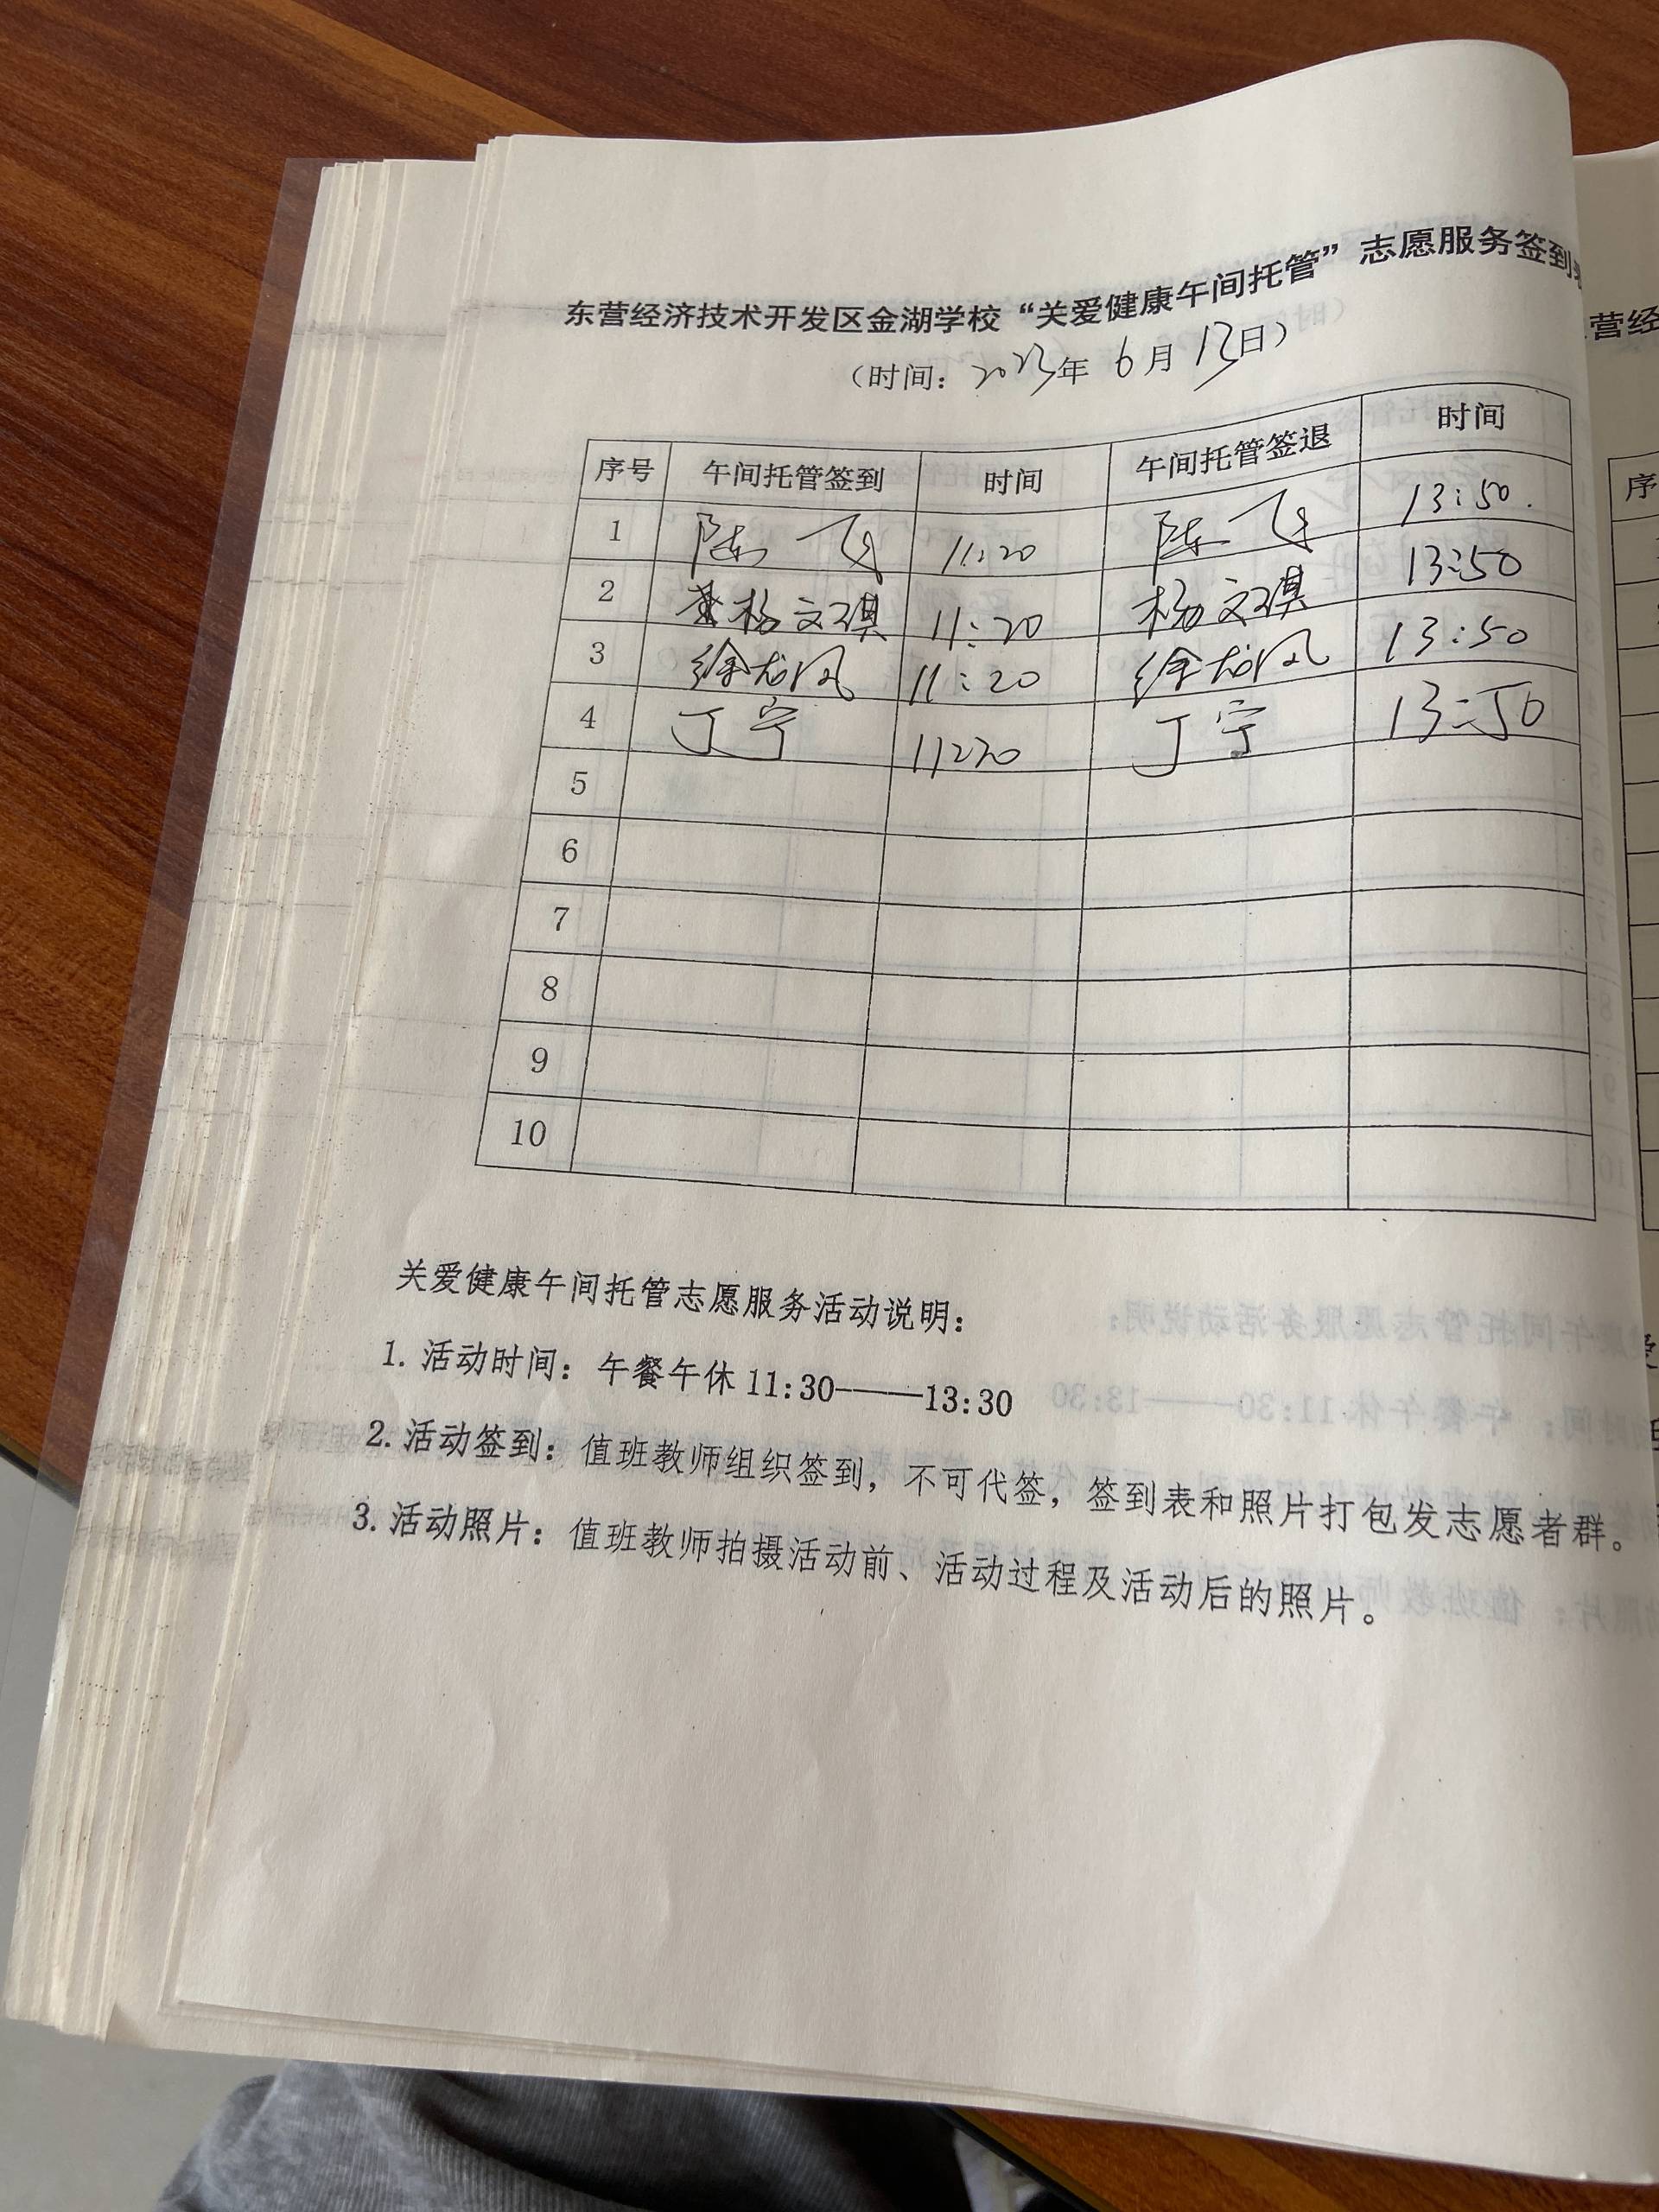 东营经济技术开发区金湖学校“关爱健康午间托管”志愿服务签到
（时间：2023年6月13日）
序号 午间托管签到 时间 午间托管签退 时间
1 陈飞 11:20 陈飞 13:50.
2 杨文琪 11:20 杨文琪 13:50
3 徐龙凤 11:20 徐龙凤 13:50
4 丁宁 11:20 丁宁 13:50
5
6
7
8
9
10
关爱健康午间托管志愿服务活动说明：
1. 活动时间：午餐午休11:30——13:30
2. 活动签到：值班教师组织签到，不可代签，签到表和照片打包发志愿者群。
3. 活动照片：值班教师拍摄活动前、活动过程及活动后的照片。
营经
序